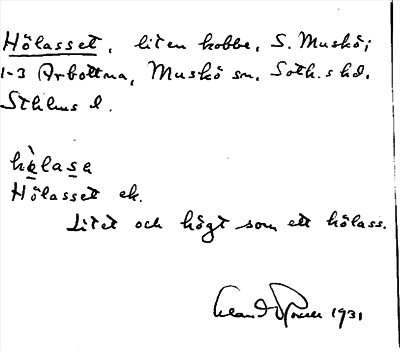 Hölasset, liten kobbe, S. Muskö;
1-3 Arbottna, Muskö sn, Soth.s hd.
Sthlms l.
hὲlasɐ
Hölasset ek.
Litet och högt som ett hölass.
1931